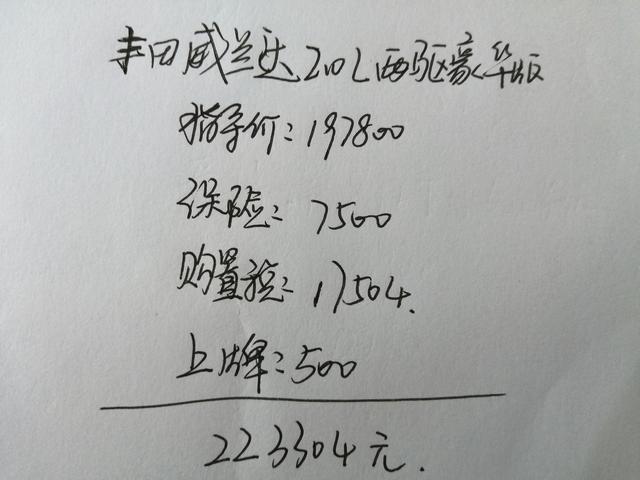 丰田威兰达2.0L两驱豪华版
指导价:197800
保险:7500
购置税:17504.
上牌:500
223304元.